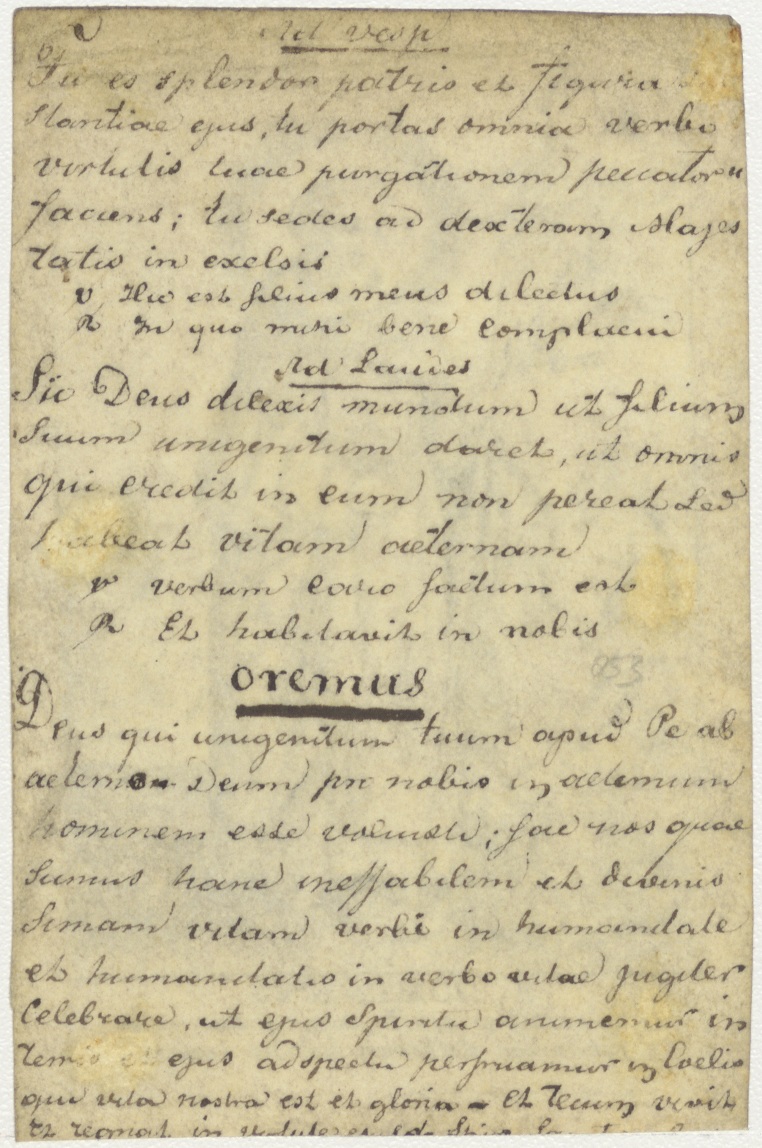 Ad vesp
Tu es splendor patris et figura
stantiae ejus, tu portas omnia verbo
virtutis tuae purgationem peccatoru
faciens; tu sedes ad dexteram Majes
tatis in exelsis
v Hic est filius meus dilectus
R In quo mihi bene complacui
Ad Laudes
Sic Deus dilexit mundum ut filium
suum unigenitum daret, ut omnis
qui credit in eum non pereat sed
habeat vitam aeternam
v verbum caro factum est
R Et habitavit in nobis
Oremus
853
Deus qui unigenitum tuum apud Te ab
aeterno Deum pro nobis in aeternum
hominem esse voluisti; fac nos quae
sumus hanc ineffabilem et divinis
simam vitam verbi in humanitate
et humanitatis in verbo vitae jugiter
Celebrare, ut ejus Spiritu animemur in
terris et ejus adspectu perfruamur in Coelis
qui vita nostra est et gloria - Et tecum vivit
et regnat in